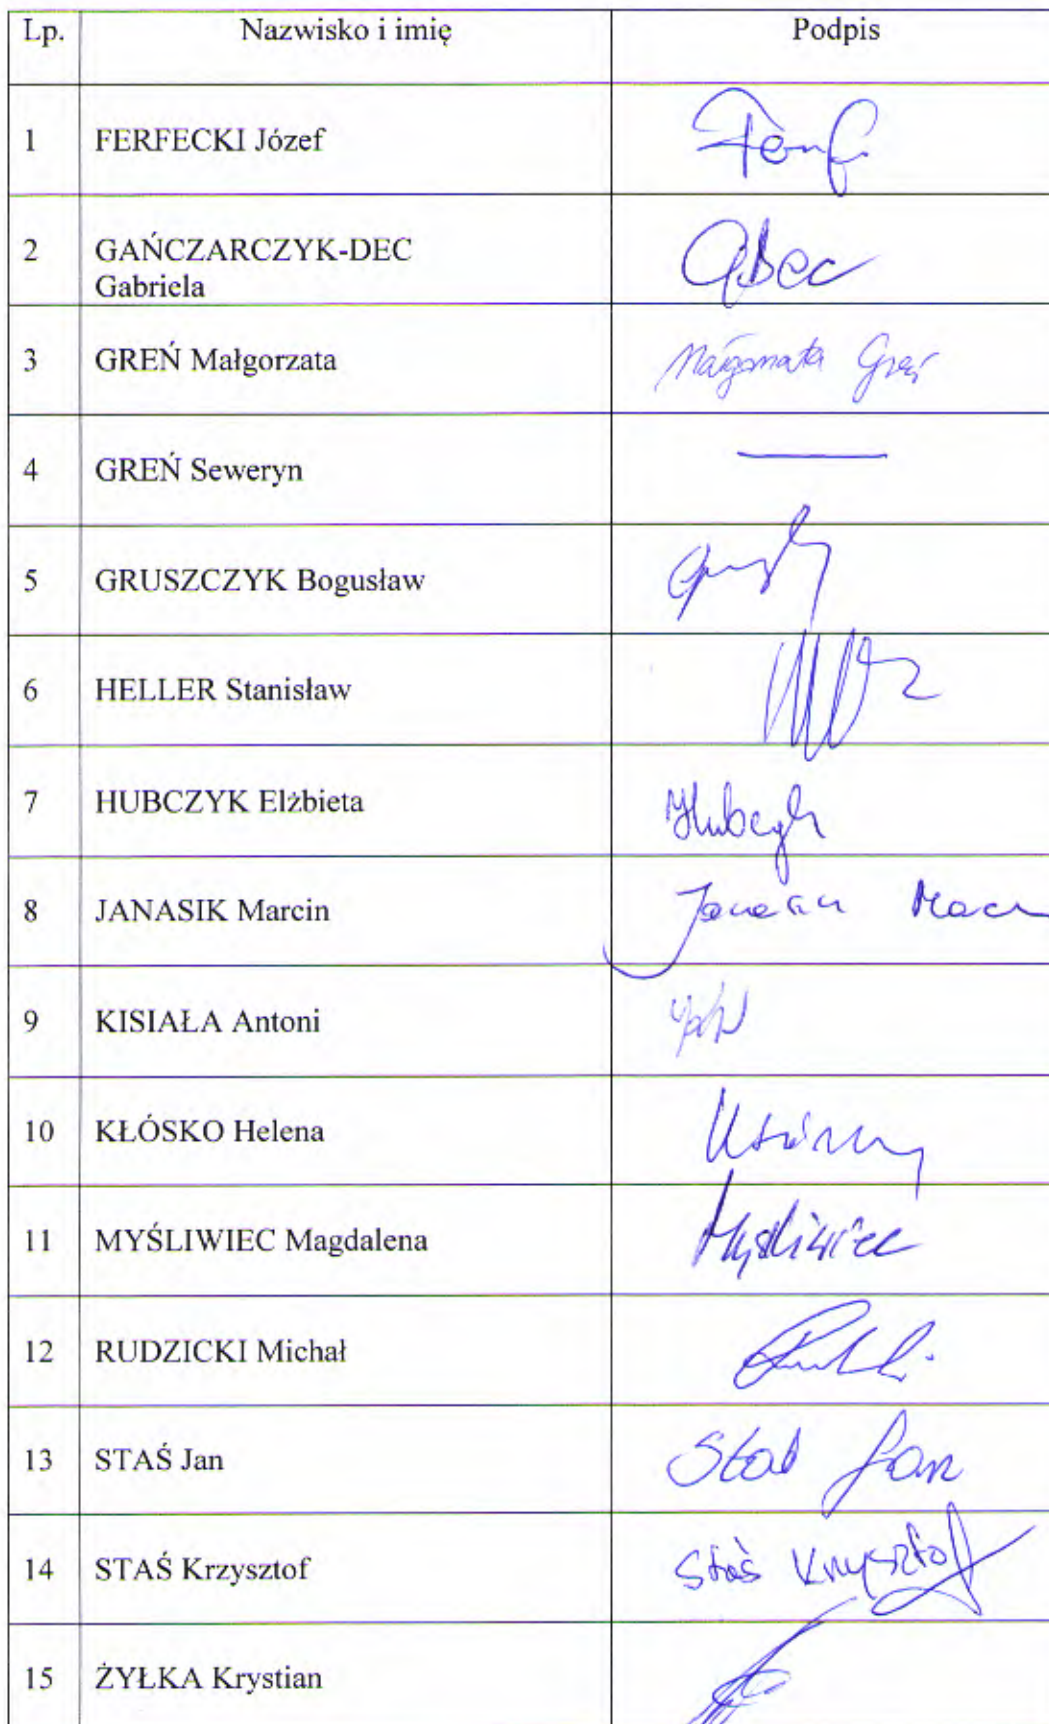 Lp. Nazwisko i imię Podpis
1 FERFECKI Józef
2 GAŃCZARCZYK-DEC
Gabriela
3 GREŃ Małgorzata Małgorzata Greń
4 GREŃ Seweryn
5 GRUSZCZYK Bogusław
6 HELLER Stanisław
7 HUBCZYK Elżbieta
8 JANASIK Marcin
9 KISIAŁA Antoni
10 KŁÓSKO Helena
11 MYŚLIWIEC Magdalena Myśliwiec
12 RUDZICKI Michał
13 STAŚ Jan Staś Jan
14 STAŚ Krzysztof Staś Krzysztof
15 ŻYŁKA Krystian